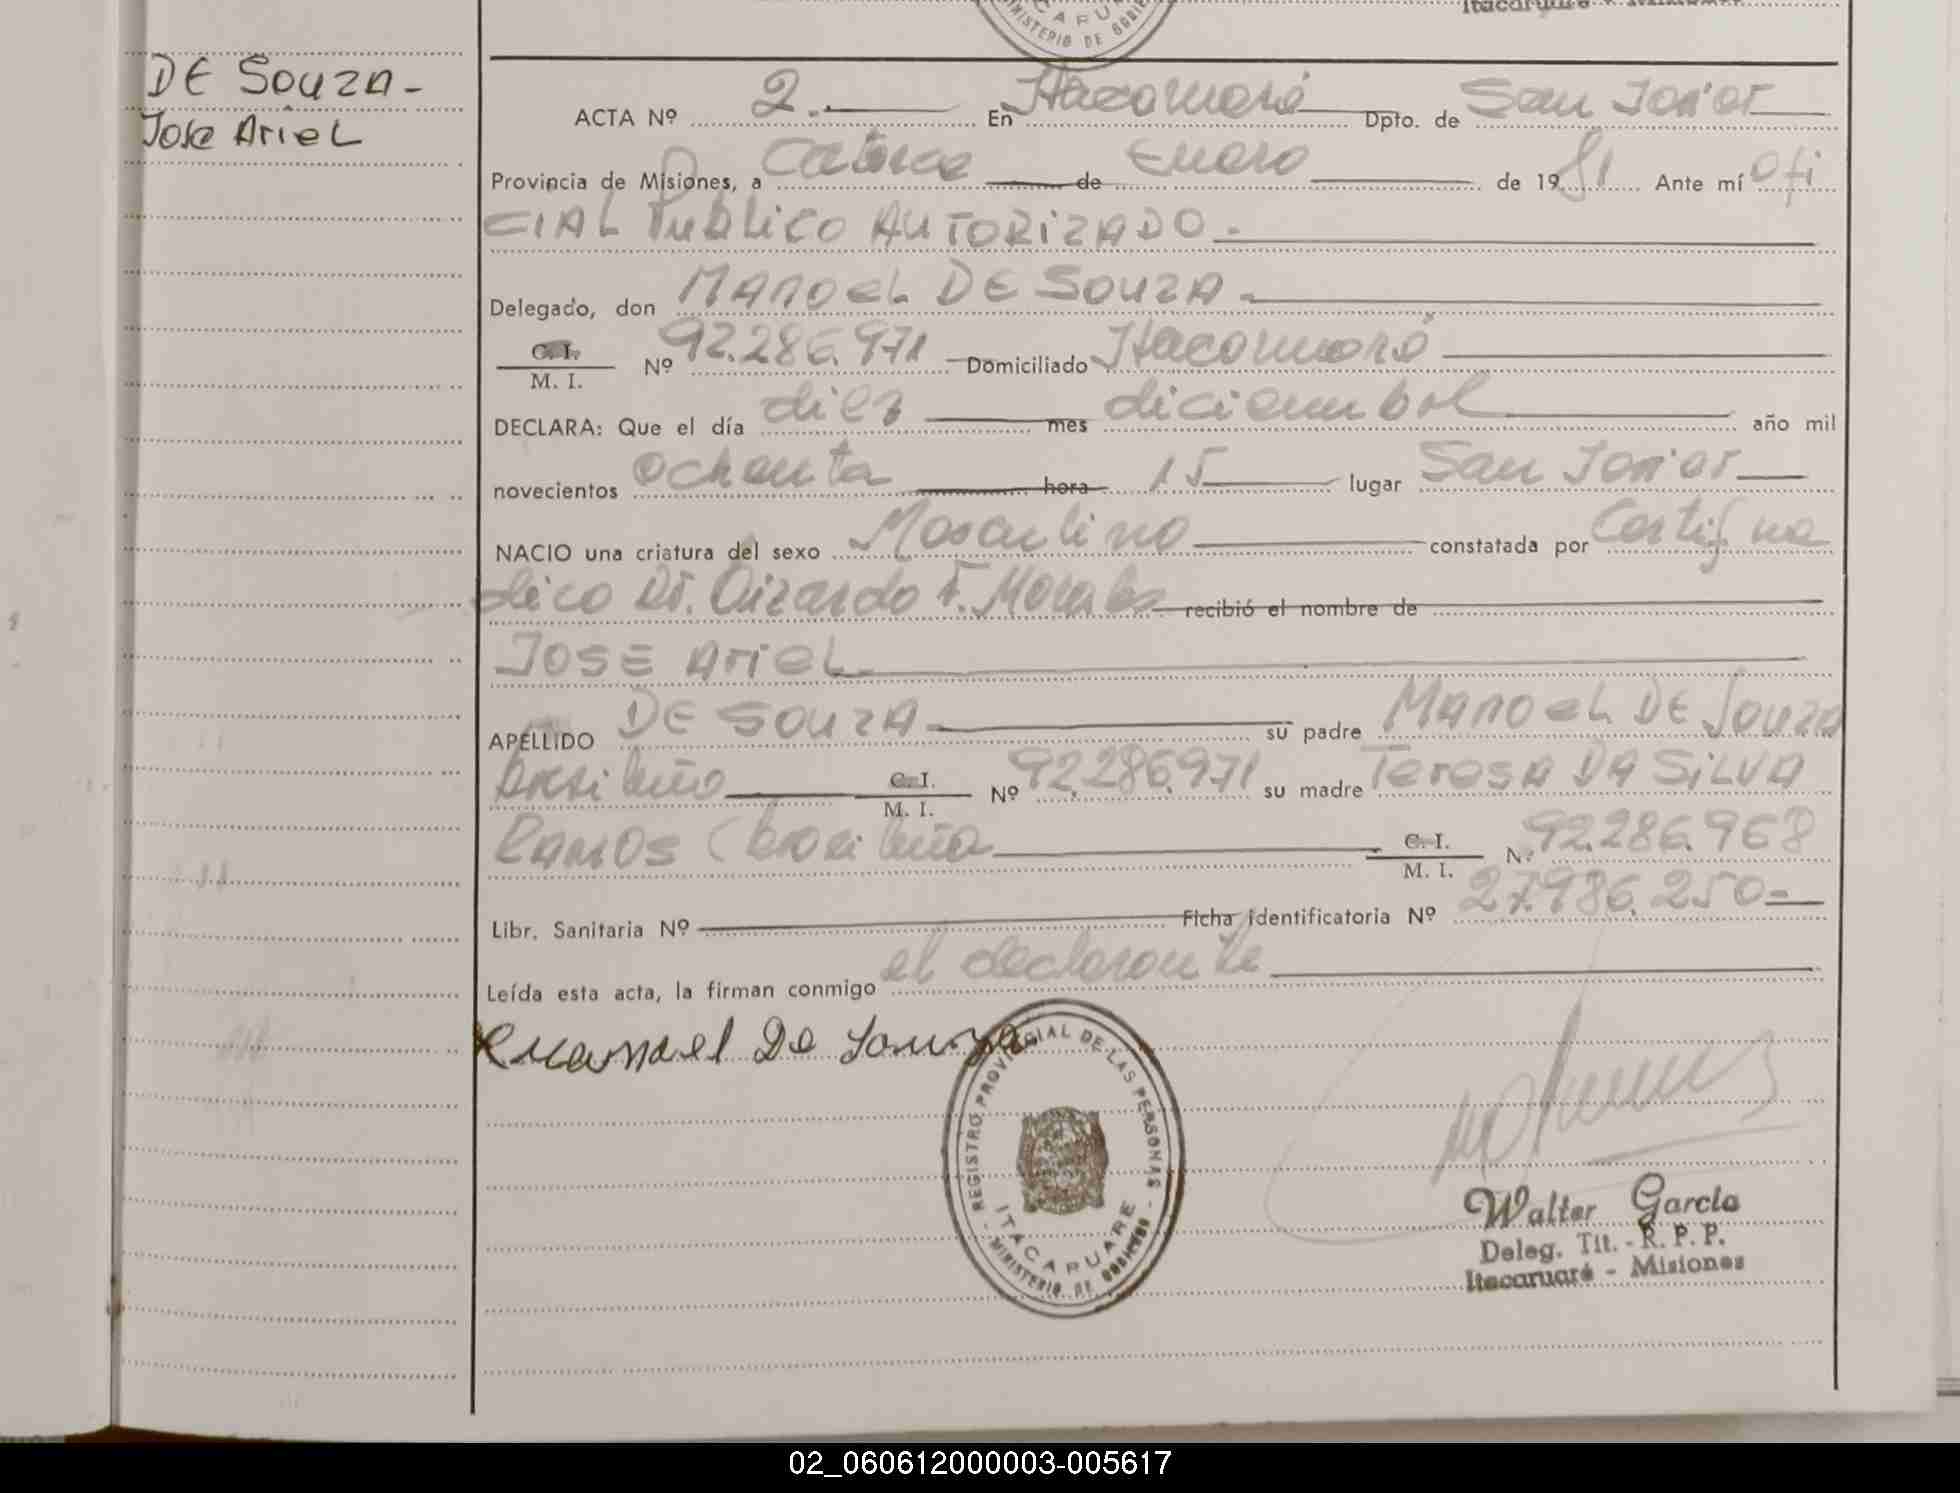 DE SOUZA-
Jose Ariel
ACTA Nº 2.- En Itacaruaré Dpto. de San Javier
Provincia de Misiones, a Catorce de Enero de 1981 Ante mí Ofi
CIAL Publico AUTORIZADO.-
Delegado, don MANOEL DE SOUZA.-
C. I.
M. I.
Nº 92.286.971 Domiciliado Itacaruaré
DECLARA: Que el día diez mes diciembre año mil
novecientos ochenta hora 15 lugar San Javier
NACIO una criatura del sexo Masculino constatada por Certif. me
dico Dr. F. Morales recibió el nombre de
JOSE Ariel
APELLIDO DE SOUZA su padre MANOEL DE SOUZA
brasileño C. I.
M. I.
Nº 92.286.971 su madre Teresa DA SILVA
Ramos (brasileña C. I.
M. I.
Nº 92.286.968
Libr. Sanitaria Nº Ficha identificatoria Nº 27.986.250-
Leída esta acta, la firman conmigo el declarante
Manoel De Souza
REGISTRO PROVINCIAL DE LAS PERSONAS
ITACARUARE
MINISTERIO DE GOBIERNO
Walter García
Deleg. Tit. - R. P. P.
Itacaruaré - Misiones
02_060612000003-005617